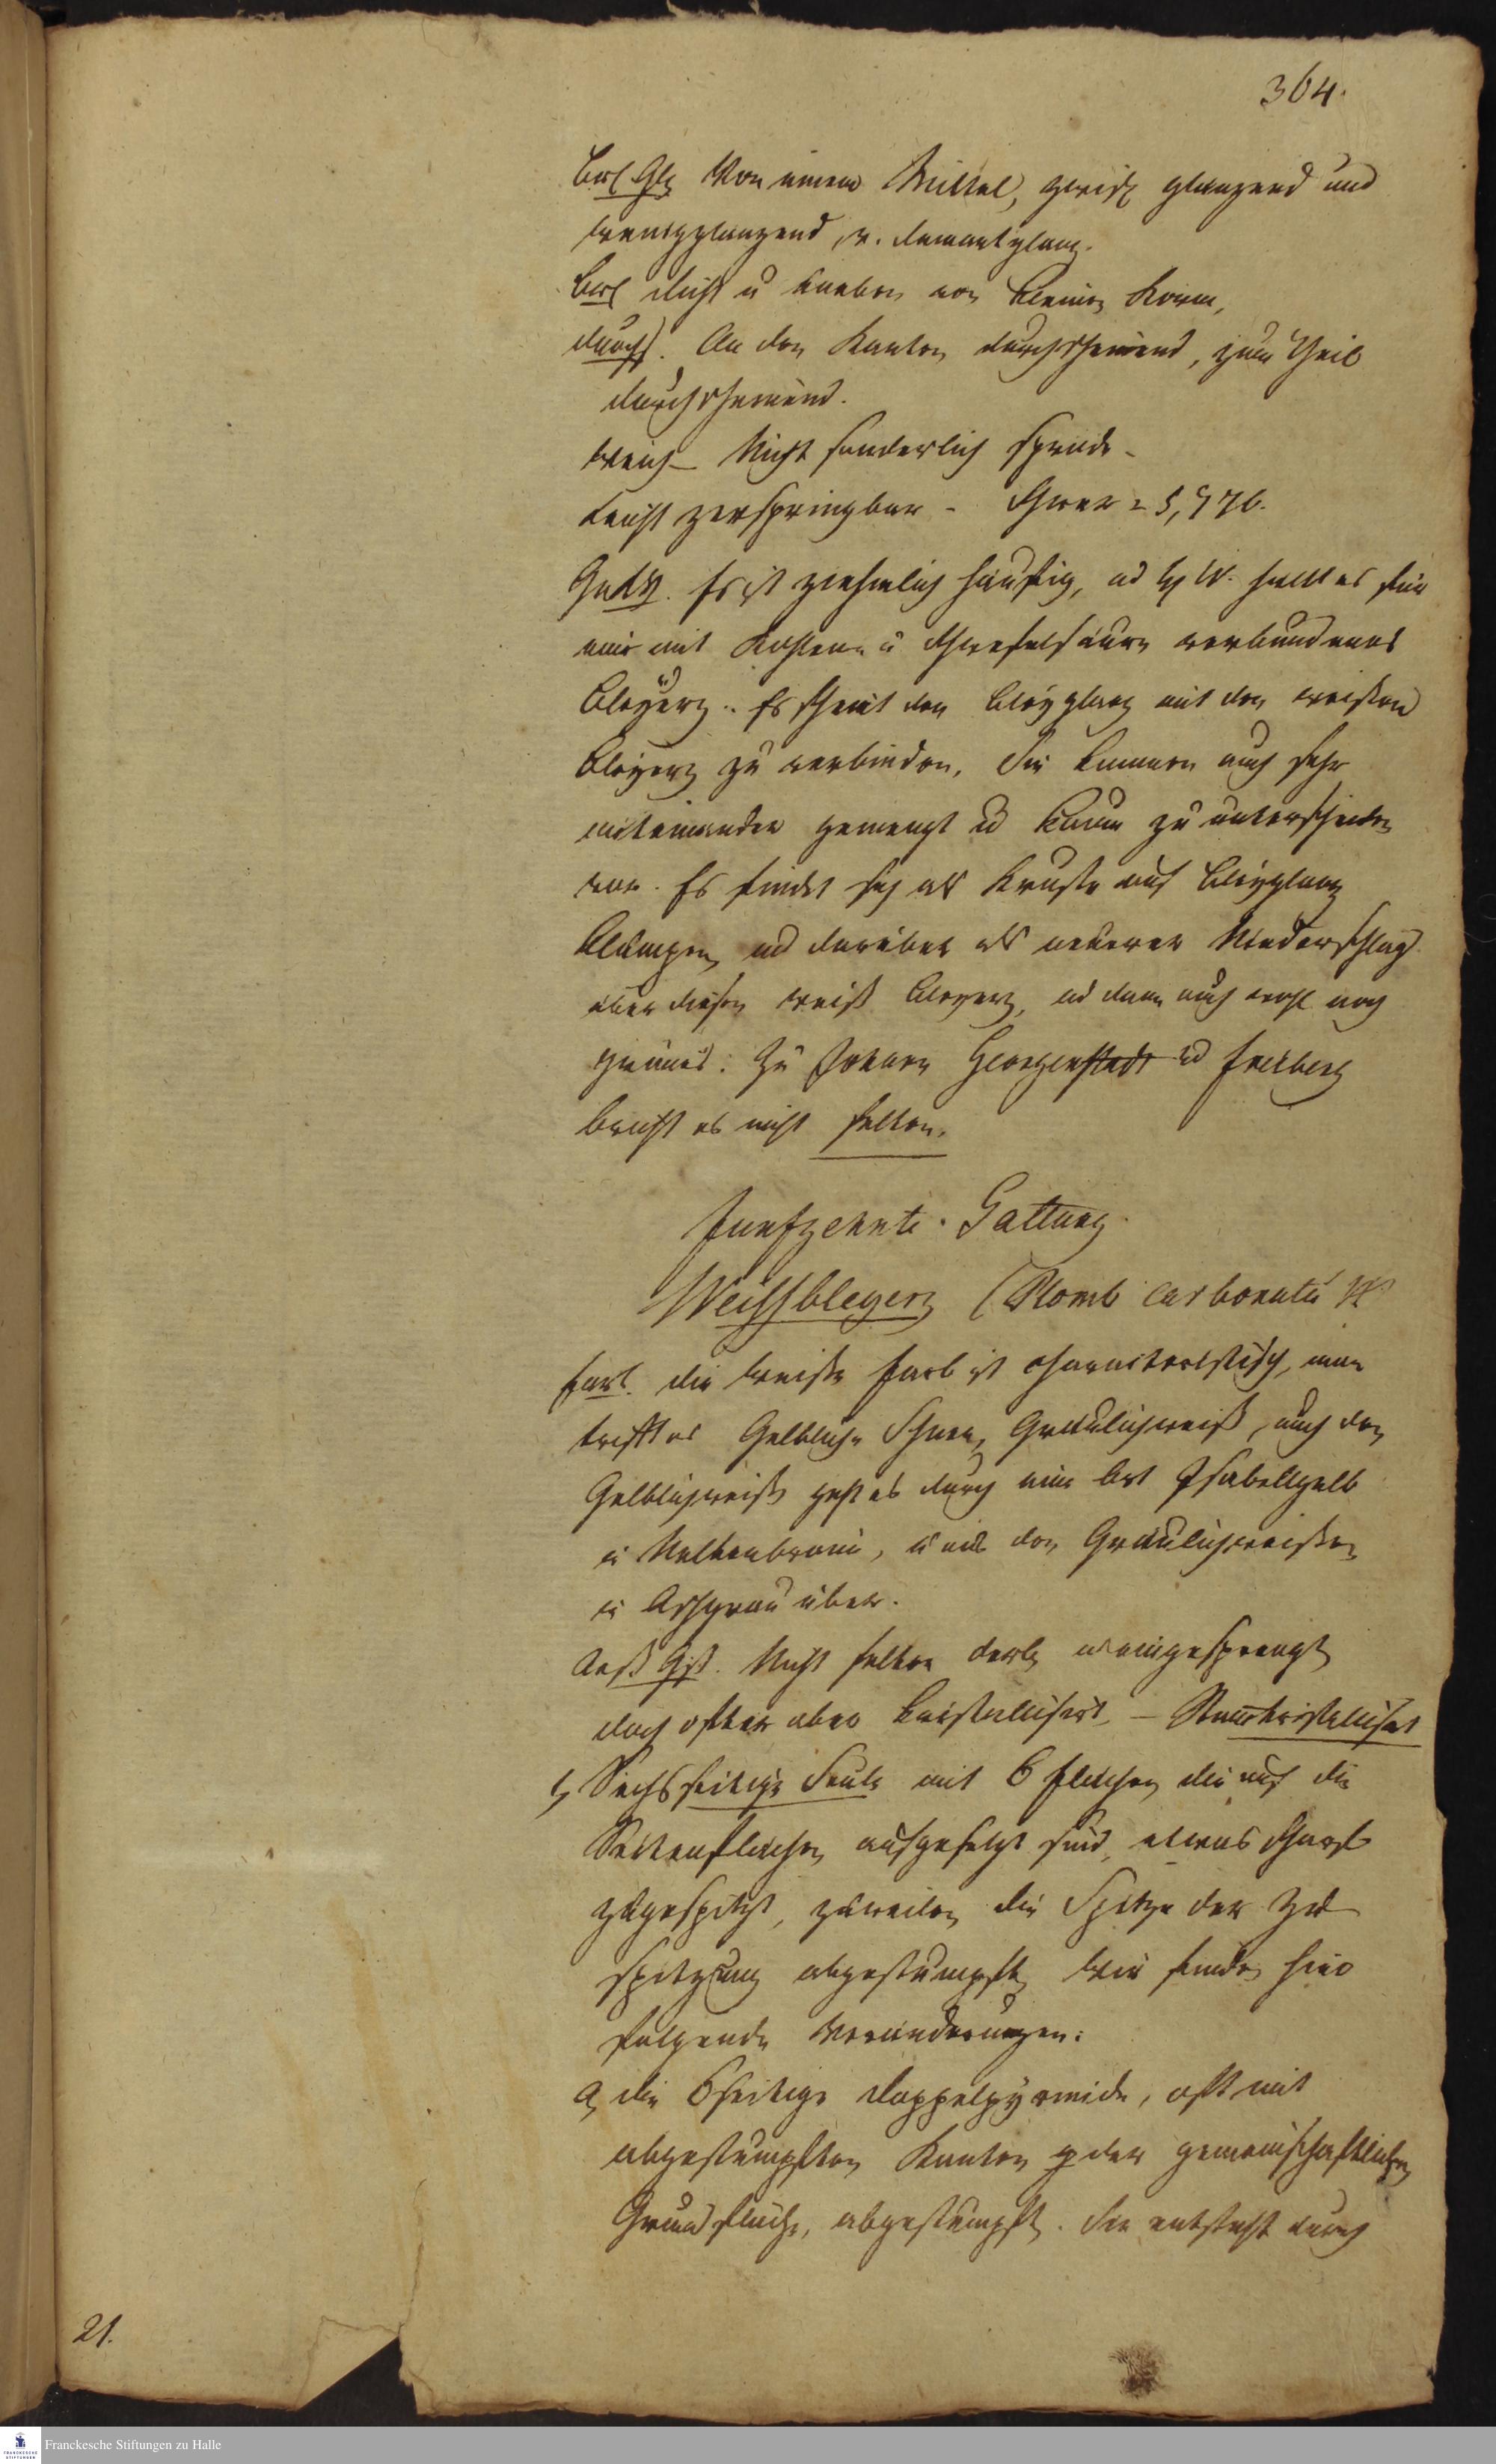 364.
Brch Glz Von einem Mittel, zwisch glänzend und
wenigglänzend, v. demantglanz.
Brch dicht u uneben von kleinen Korn,
durchs. An den Kanten durchscheinend, zum Theil
durchscheinend.
weich – Nicht sonderlich spröde –
Leicht zerspringbar – Schwer = 5,976.
Es ist ziehmlich häufig, W. hält es für
ein mit Kohlen- u Schwefelsäure verbundenes
Bleyerz. Es scheint den Bleyglanz mit den weißen
Bleyerz zu verbinden. Sie kommen auch sehr
miteinander gemengt u kaum zu unterscheiden
vor. Es findet sich als Kruste auf Bleyglanz
Klumpen, und darüber als neuerer Niederschlag
über diesen weiß Bleyerz, und dann auch wohl noch
grünes. Zu Johann Georgenstadt und Freiberg
bricht es nicht selten.
Funfzehnte. Gattung.
Weissbleyerz (Plomb carbonaté H
Farb. die weiße Farb ist charackteristisch, man
trifft es Gelblich- Schnee, Graulichweiß, auch den
Gelblichweiß geht es durch eine Art Isabellgelb
in Nelkenbraun, u aus den Graulichweißen
in Aschgrau über.
Aeß Gst. Nicht selten derb, u eingesprengt,
doch öfter aber kristallisirt. – Stammkristallisat
Sechsseitige Saule mit 6 flächen, die auf die
Seitenflächen aufgesetzt sind, etwas scharf
zugespitzt, zuweilen die Spitze der Zu-
spitzung abgestumpft, Wir finden hier
folgende Veränderungen:
a, die 6seitige Doppelpyramide, oft mit
abgestumpften Kanten der gemeinschaftlichen
Grundfläche, abgestumpft. Sie entsteht durch
21.
Franckesche Stiftungen zu Halle